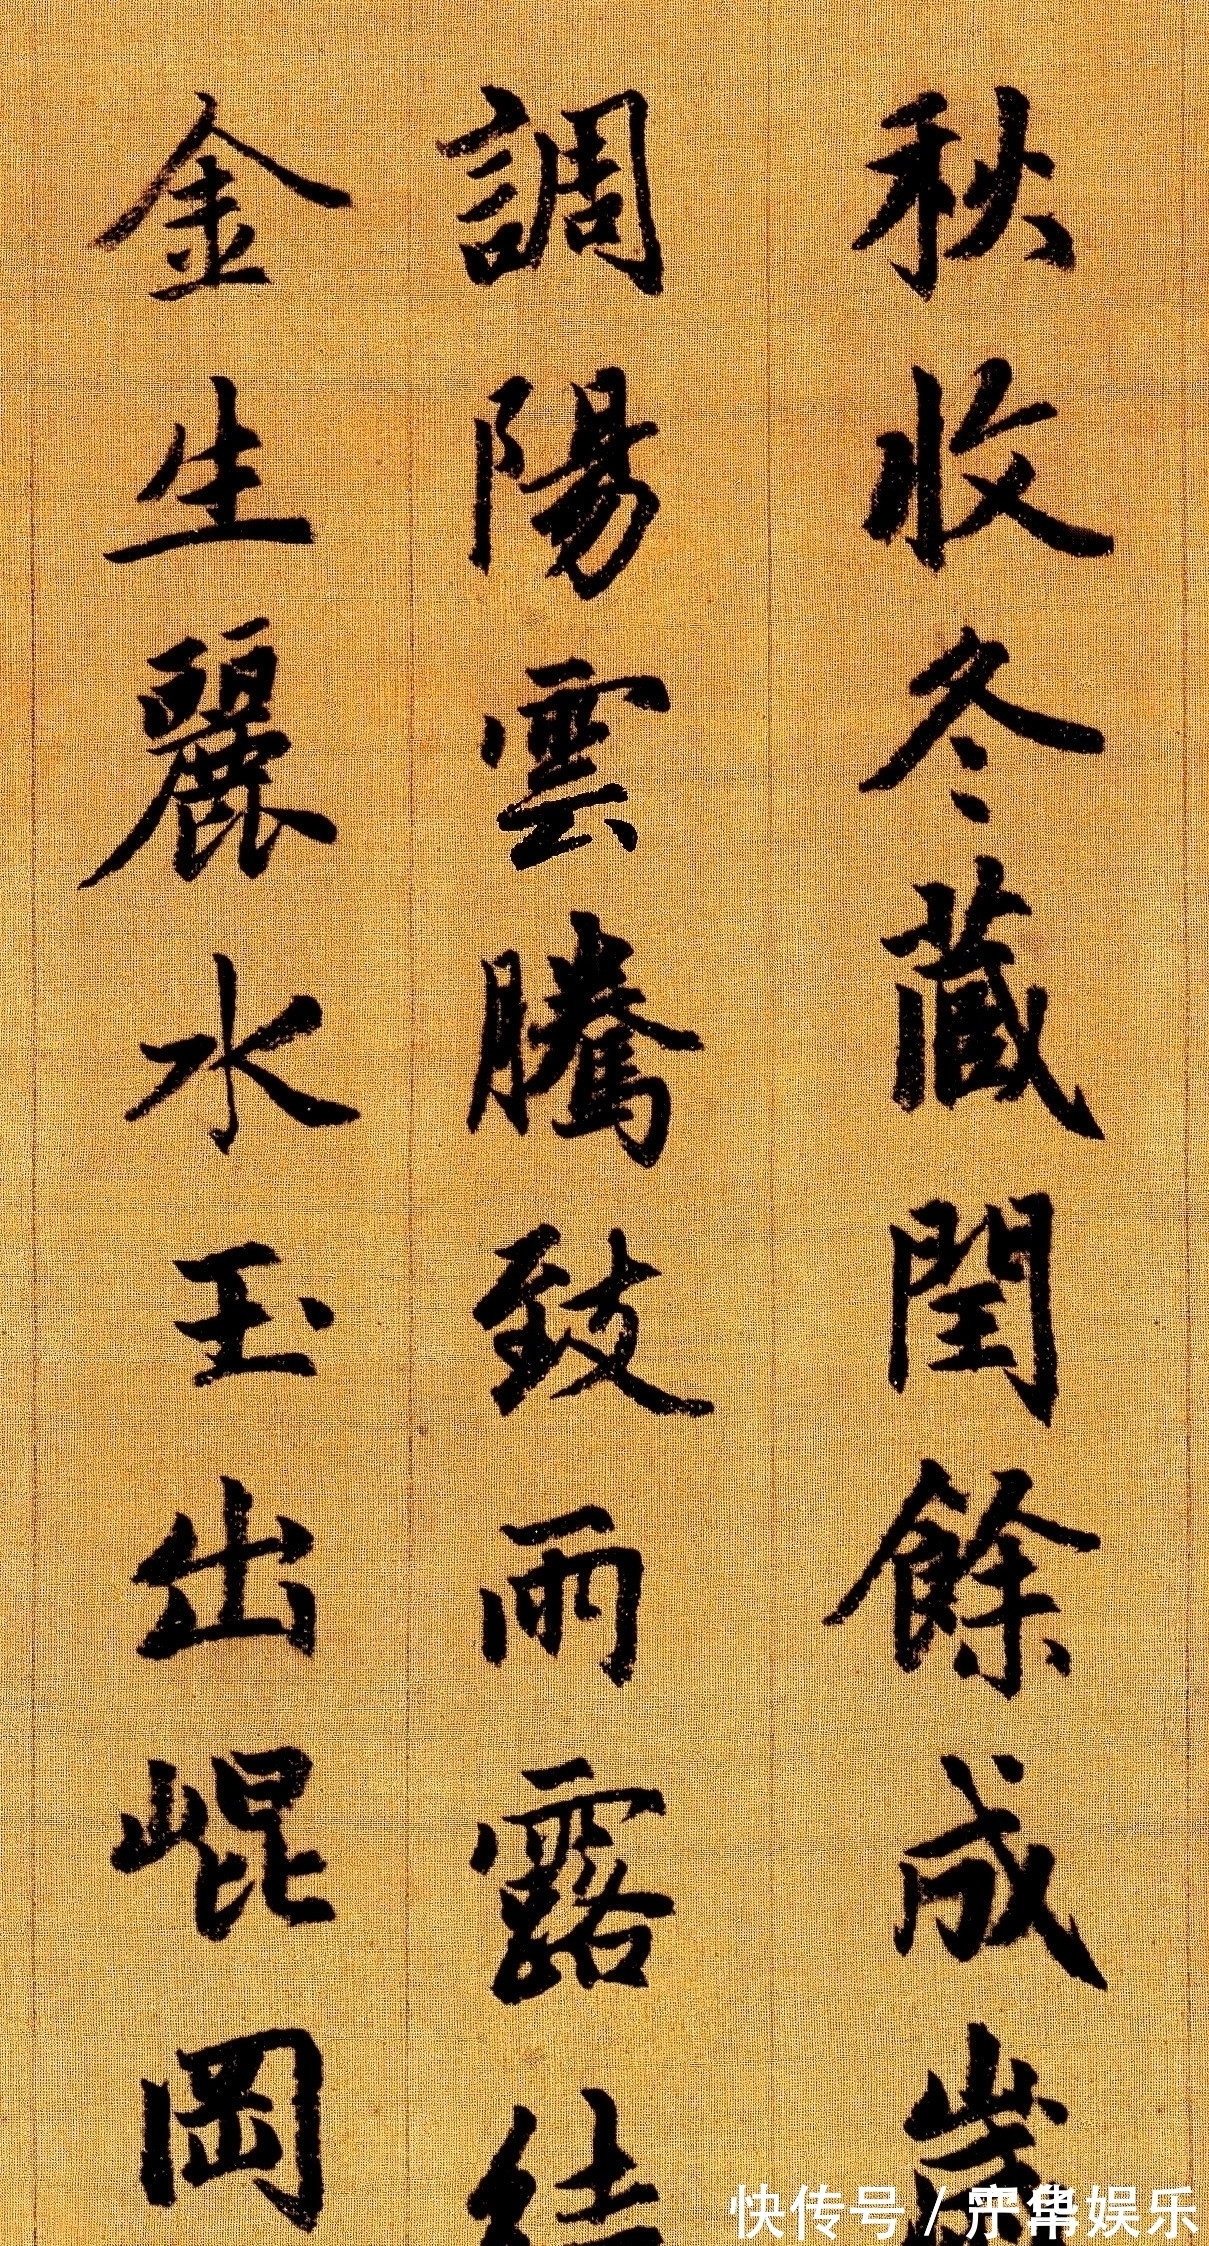 秋收冬藏閏餘成歲
調陽雲騰致雨露結
金生麗水玉出崐岡
快传号 / 
娱乐